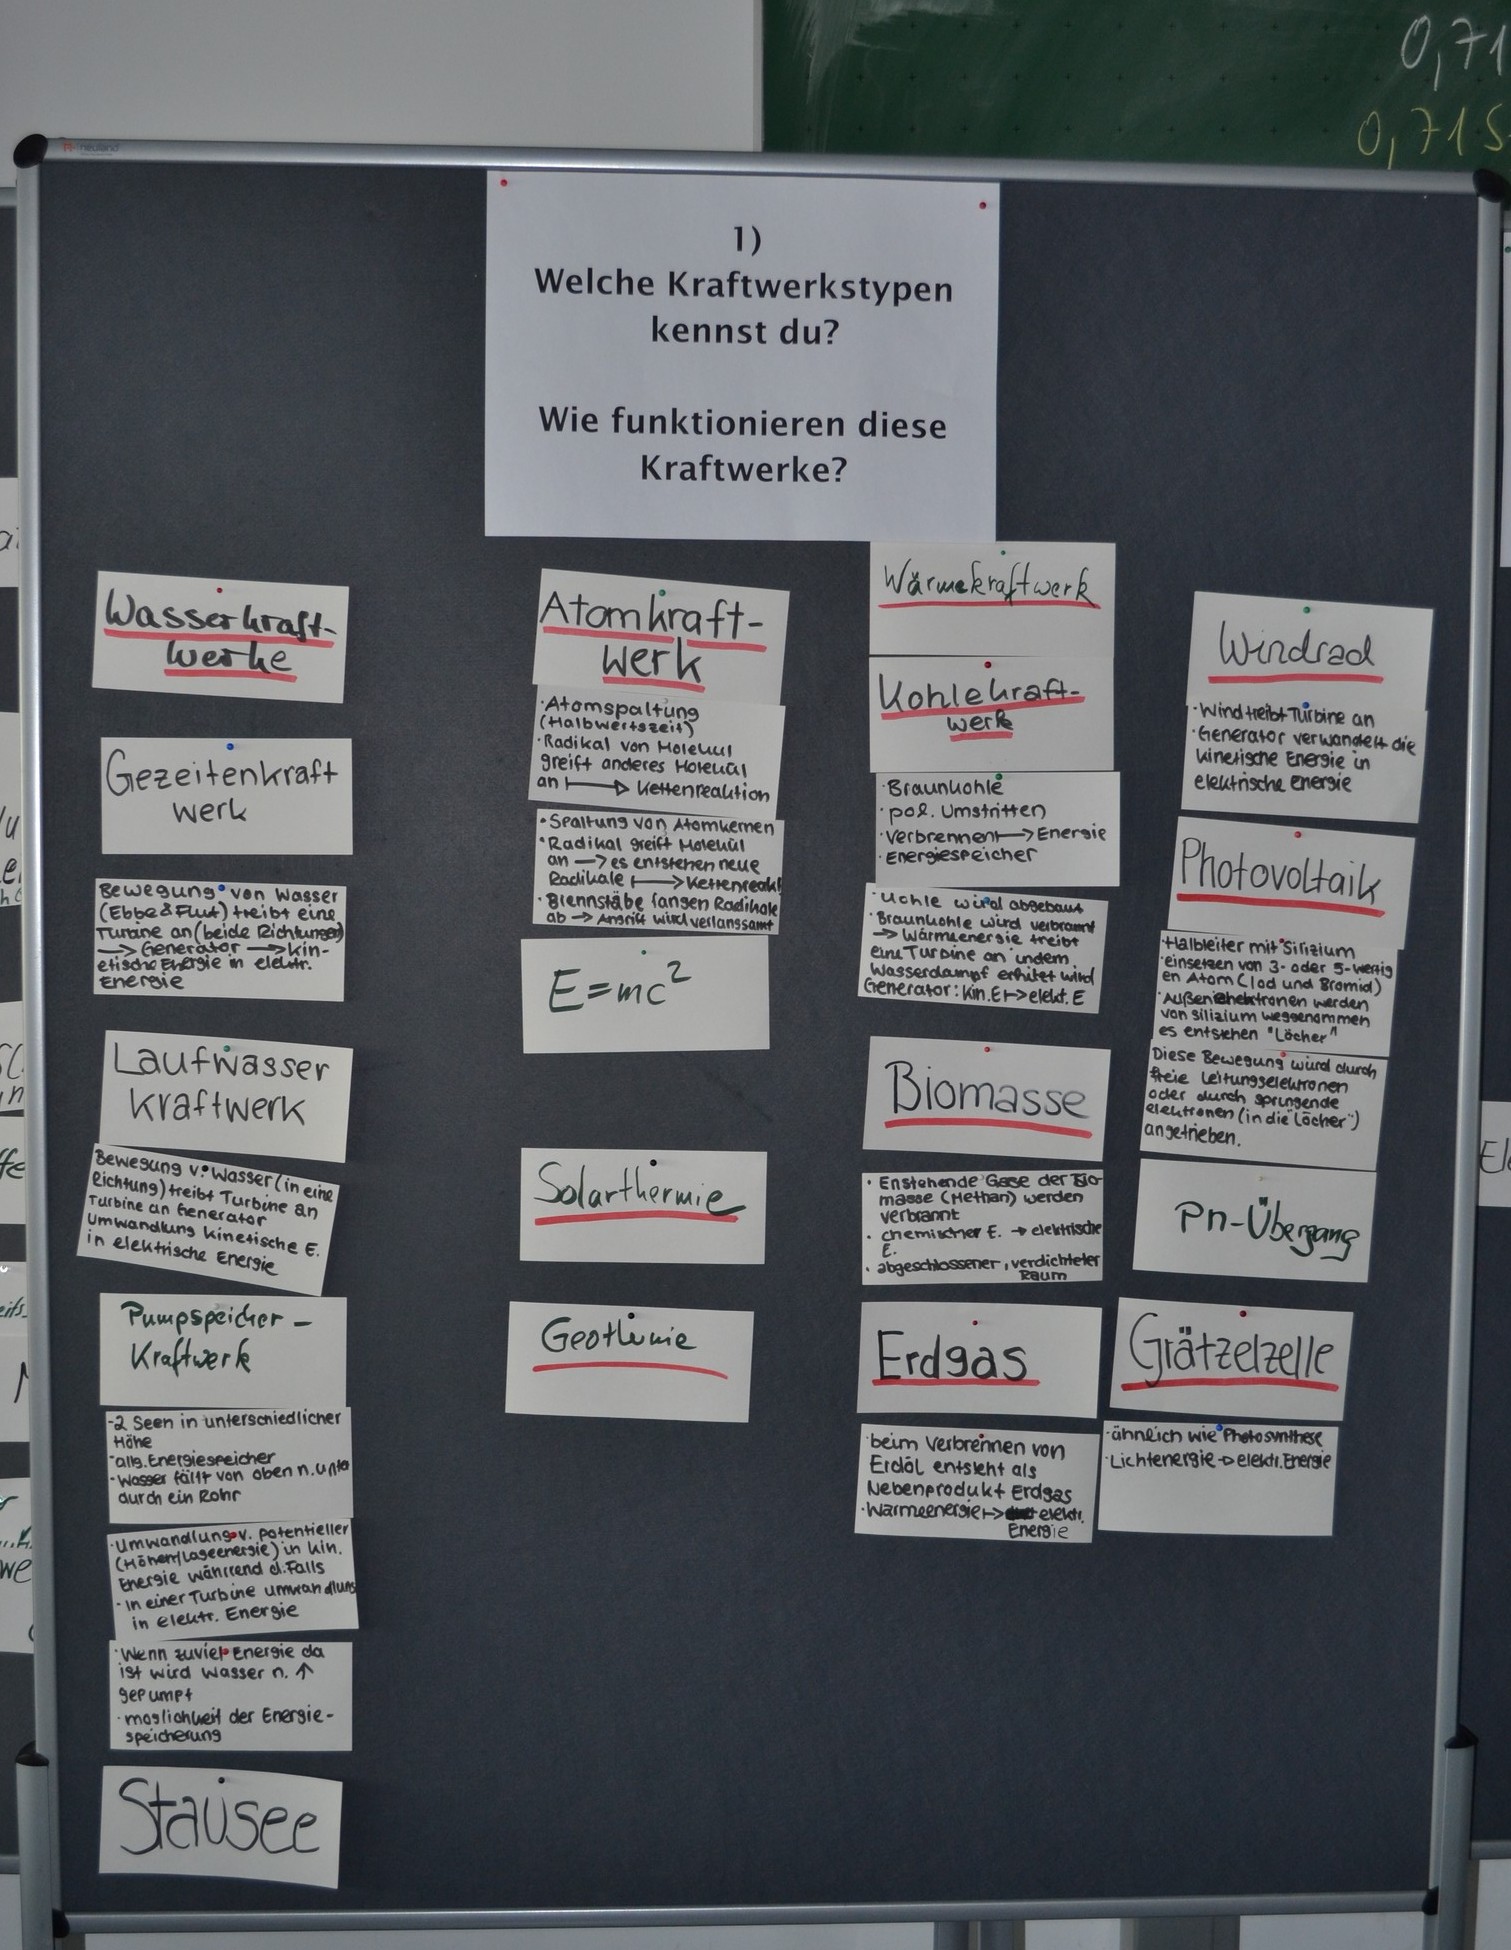 neuland
0,71
0,715
1)
Welche Kraftwerkstypen
kennst du?
Wie funktionieren diese
Kraftwerke?
Wasserkraft-
werke
Gezeitenkraft
werk
Bewegung von Wasser
(Ebbe & Flut) treibt eine
Turbine an (beide Richtungen)
→ Generator → kin-
etische Energie in elektr.
Energie
Laufwasser
kraftwerk
Bewegung v. Wasser (in eine
Richtung) treibt Turbine an
Turbine an Generator
Umwandlung kinetische E.
in elektrische Energie
Pumpspeicher-
Kraftwerk
-2 Seen in unterschiedlicher
Höhe
-allg. Energiespeicher
-Wasser fällt von oben n. unten
durch ein Rohr
·Umwandlung v. potentieller
(Höhen/Lageenergie) in kin.
Energie während d. Falls
·In einer Turbine umwandlung
in elektr. Energie
·Wenn zuviel Energie da
ist wird Wasser n. ↑
gepumpt
·möglichkeit der Energie-
speicherung
Stausee
Atomkraft-
werk
·Atomspaltung
(Halbwertszeit)
·Radikal von Molekül
greift anderes Molekül
an ↦ Kettenreaktion
·Spaltung von Atomkernen
·Radikal greift Molekül
an → es entstehen neue
Radikale ↦ Kettenreakt
·Brennstäbe fangen Radikale
ab → Angriff wird verlangsamt
E=mc²
Solarthermie
Geothermie
Wärmekraftwerk
Kohlekraft-
werk
·Braunkohle
·pol. Umstritten
·Verbrennen ↦ Energie
·Energiespeicher
·Kohle wird abgebaut
·Braunkohle wird verbrannt
→ Wärmeenergie treibt
eine Turbine an indem
Wasserdampf erhitzt wird
Generator: kin. E ↦ elekt. E
Biomasse
· Enstehende Gase der Bio-
masse (Methan) werden
verbrannt
· chemischer E. → elektrische
E.
· abgeschlossener, verdichteter
Raum
Erdgas
·beim Verbrennen von
Erdöl entsteht als
Nebenprodukt Erdgas
·Wärmeenergie ↦ elektr.
Energie
Windrad
·Wind treibt Turbine an
·Generator verwandelt die
kinetische Energie in
elektrische Energie
Photovoltaik
Halbleiter mit Silizium
·einsetzen von 3- oder 5-wertig
en Atom (Iod und Bromid)
·Außenelektronen werden
von silizium weggenommen
es entstehen "Löcher"
Diese Bewegung würd durch
freie Leitungselektronen
oder durch springende
elektronen (in die "Löcher")
angetrieben.
Pn-Übergang
Grätzelzelle
·ähnlich wie Photosynthese
·Lichtenergie → elektr. Energie